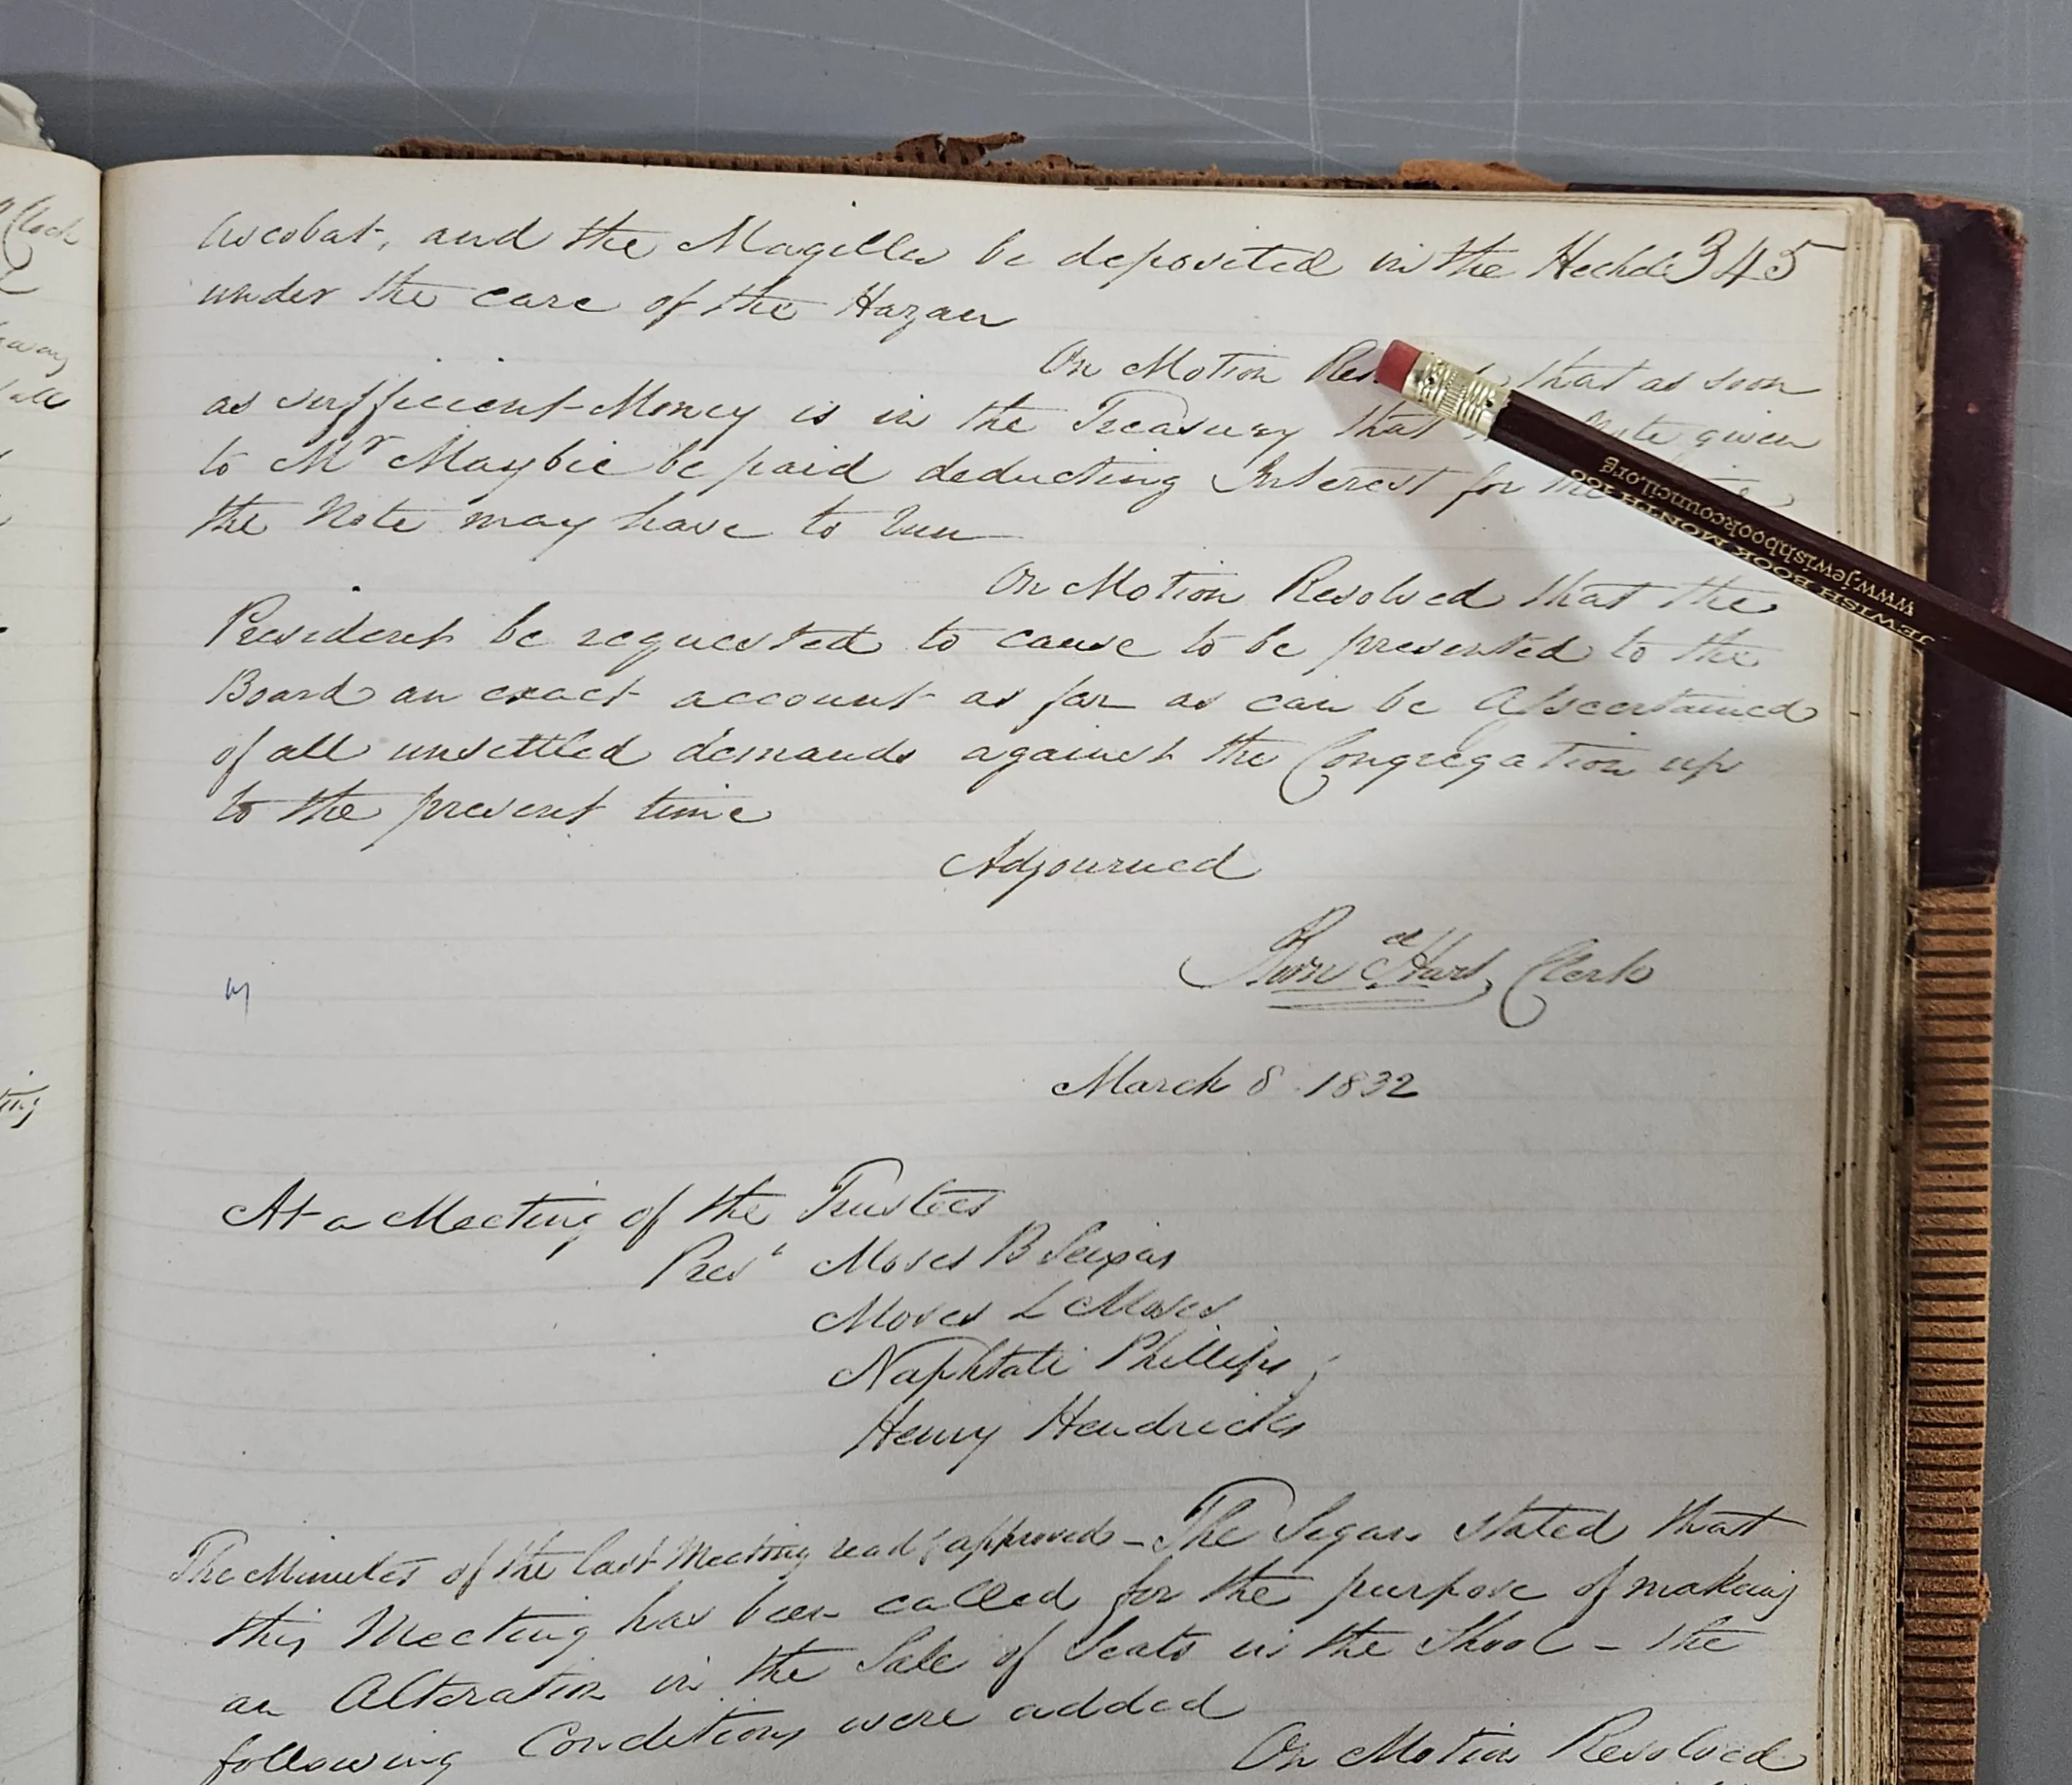 345
Ascobat, and the Magilla be deposited in the Hechal
under the care of the Hazan
On Motion that as soon
as sufficient Money is in the Treasury that Note given
to Mr Maybie be paid deducting Interest for the
the Note may have to run
On Motion Resolved that the
President be requested to cause to be presented to the
Board an exact account as far as can be Ascertained
of all unsettled demands against the Congregation up
to the present time
Adjourned
Hart Clerk
March 8 1832
At a Meeting of the Trustees
Prest Moses B Seixas
Moses L Moses
Naphtali Phillips
Henry Hendricks
The Minutes of the last Meeting read & approved - The Segan stated that
this Meeting has been called for the purpose of making
an Alteration in the Sale of Seats in the Shool - the
following Conditions were added
On Motion Resolved
JEWISH BOOK MONTH 100
www.jewishbookcouncil.org